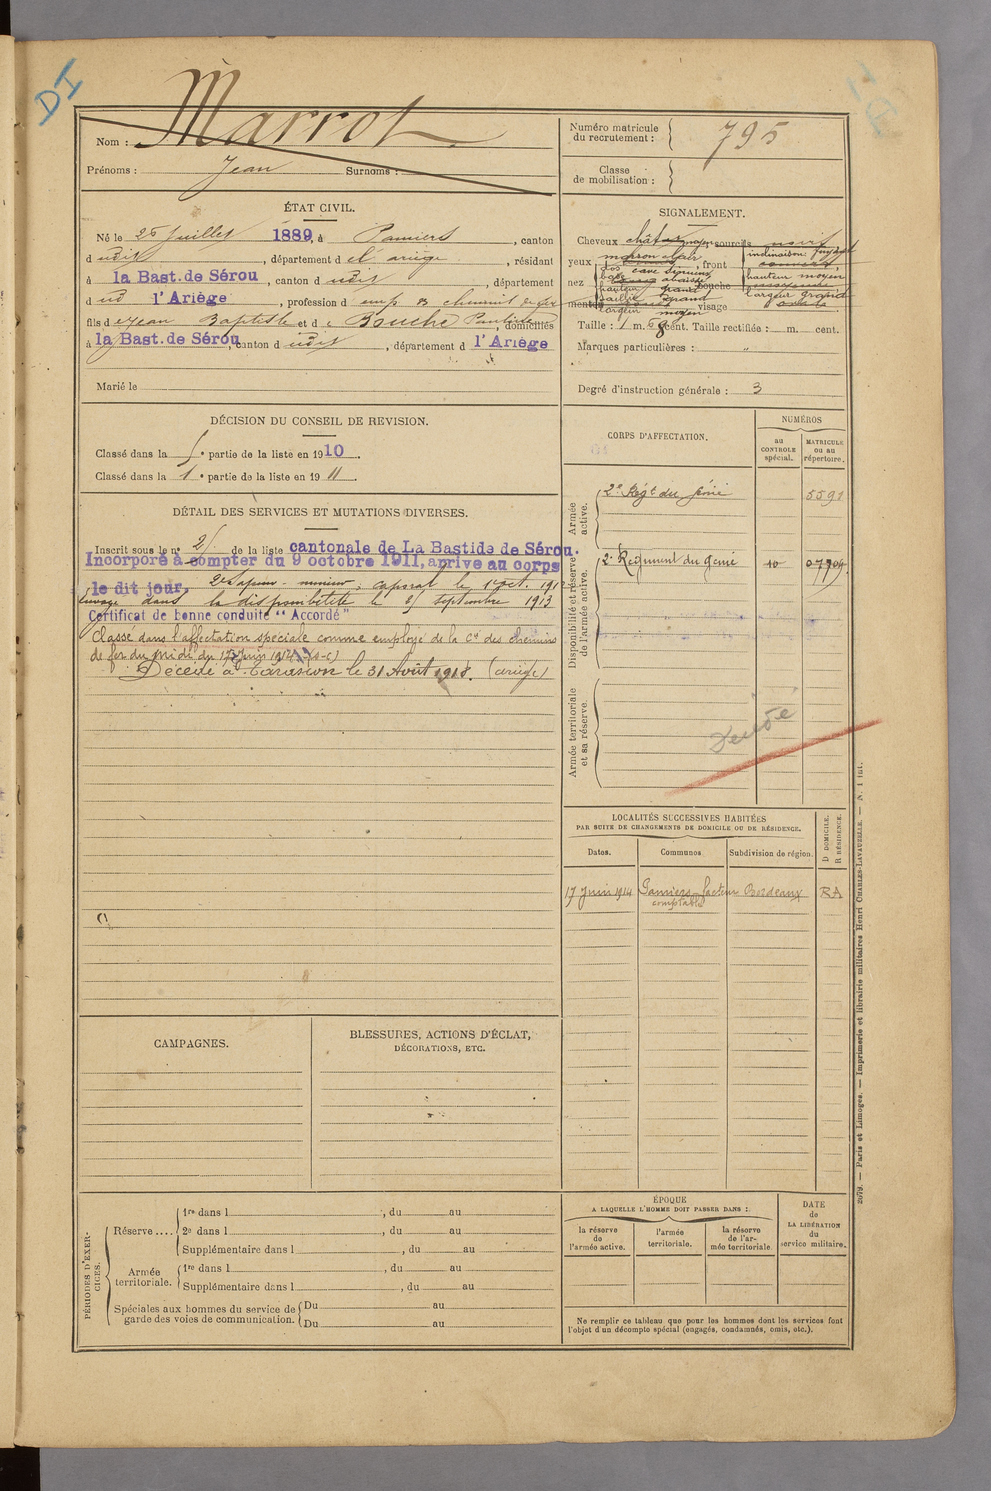 DI
Nom : Marrot
Prénoms : Jean Surnoms :
Numéro matricule du recrutement : 795
Classe de mobilisation :
ÉTAT CIVIL.
Né le 26 Juillet 1889, à Pamiers, canton
d udit, département d el ariège, résidant
à la Bast. de Sérou, canton d udit, département
d ud l'Ariège, profession d emp chemin de fer
fils d e Jean Baptiste et d e Bouche Pauline, domiciliés
à la Bast. de Sérou, canton d udit, département d l'Ariège
Marié le
SIGNALEMENT.
Cheveux châtains moyen sourcils noirs
marron clair
yeux, front inclinaison
dos cave sinueux
nez base bouche hauteur moyen
hauteur grand largeur grand
menton saillie grand visage ovale
largeur moyen
Taille : 1 m. 68 cent. Taille rectifiée : m. cent.
Marques particulières : "
Degré d'instruction générale : 3
DÉCISION DU CONSEIL DE REVISION.
Classé dans la 5e partie de la liste en 1910.
Classé dans la 1e partie de la liste en 1911.
CORPS D'AFFECTATION.
NUMÉROS
au CONTROLE spécial.
MATRICULE ou au répertoire.
Armée active.
2e Régt du génie 5591
Disponibilité et réserve de l'armée active.
2e Régiment du Génie 10 07709
Armée territoriale et sa réserve.
DÉTAIL DES SERVICES ET MUTATIONS DIVERSES.
Inscrit sous le n° 2 de la liste cantonale de La Bastide de Sérou.
Incorporé à compter du 9 octobre 1911, arrivé au corps
le dit jour, 2e Sapeur-mineur, caporal le 1 oct. 191
Envoyé dans la disponibilité le 25 septembre 1913
Certificat de bonne conduite "Accordé"
Classé dans l'affectation spéciale comme employé de la Cie des chemins
de fer du midi du 17 Juin 1914
Décédé à Tarascon le 31 Août 1918. (ariège)
LOCALITÉS SUCCESSIVES HABITÉES
PAR SUITE DE CHANGEMENTS DE DOMICILE OU DE RÉSIDENCE.
D DOMICILE.
R RÉSIDENCE.
Dates. Communes. Subdivision de région.
17 Juin 1914 Pamiers facteur Bordeaux RA
comptable
CAMPAGNES.
BLESSURES, ACTIONS D'ÉCLAT,
DÉCORATIONS, ETC.
PÉRIODES D'EXERCICES.
Réserve ....
1re dans l , du au
2e dans l , du au
Supplémentaire dans l , du au
Armée territoriale.
1re dans l , du au
Supplémentaire dans l , du au
Spéciales aux hommes du service de garde des voies de communication.
Du au
Du au
ÉPOQUE
A LAQUELLE L'HOMME DOIT PASSER DANS :
la réserve de l'armée active.
l'armée territoriale.
la réserve de l'armée territoriale.
DATE de LA LIBÉRATION du service militaire.
Ne remplir ce tableau que pour les hommes dont les services font
l'objet d'un décompte spécial (engagés, condamnés, omis, etc.).
2079. — Paris et Limoges. — Imprimerie et librairie militaires Henri CHARLES-LAVAUZELLE. — N. 1 int.